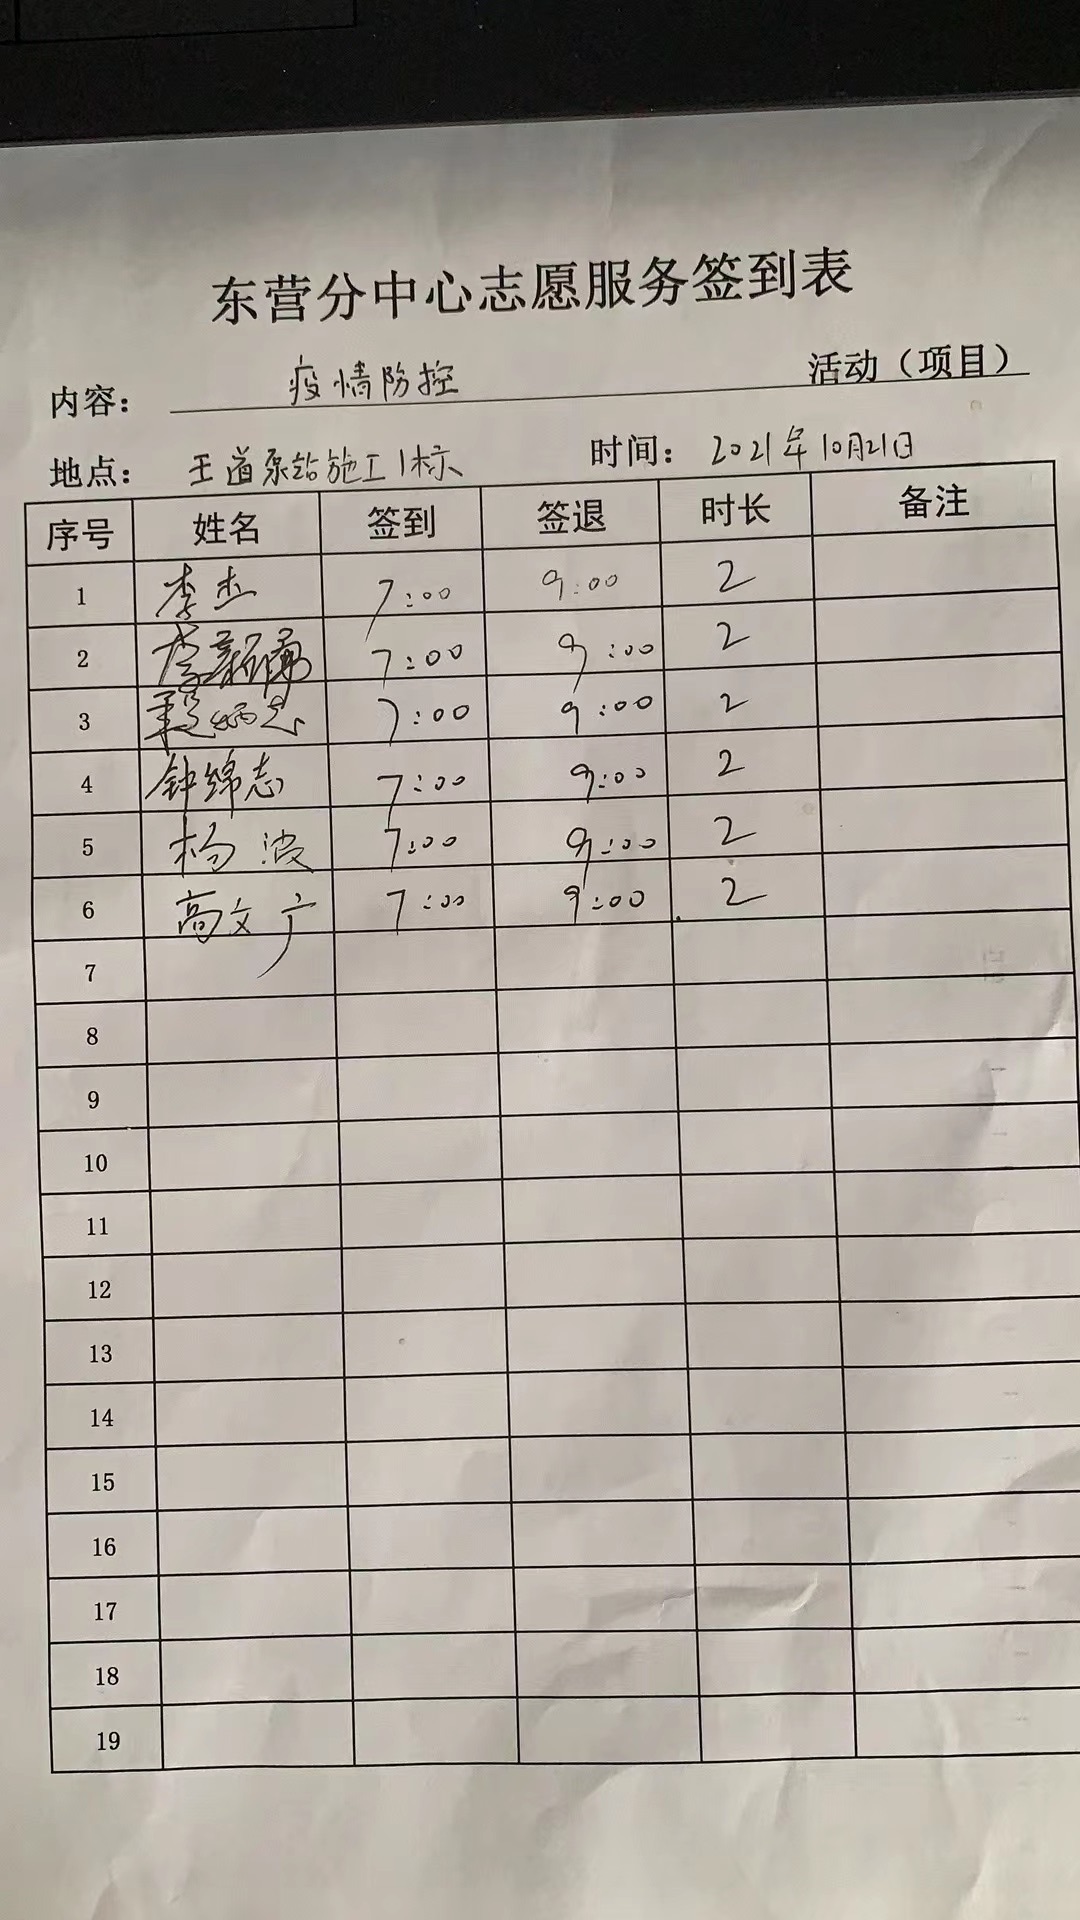 东营分中心志愿服务签到表
内容： 疫情防控 活动（项目）
地点： 王道泵站施工1标 时间： 2021年10月21日
序号 姓名 签到 签退 时长 备注
1 李杰 7:00 9:00 2
2 7:00 9:00 2
3 7:00 9:00 2
4 钟绵志 7:00 9:00 2
5 杨波 7:00 9:00 2
6 高文广 7:00 9:00 2
7
8
9
10
11
12
13
14
15
16
17
18
19